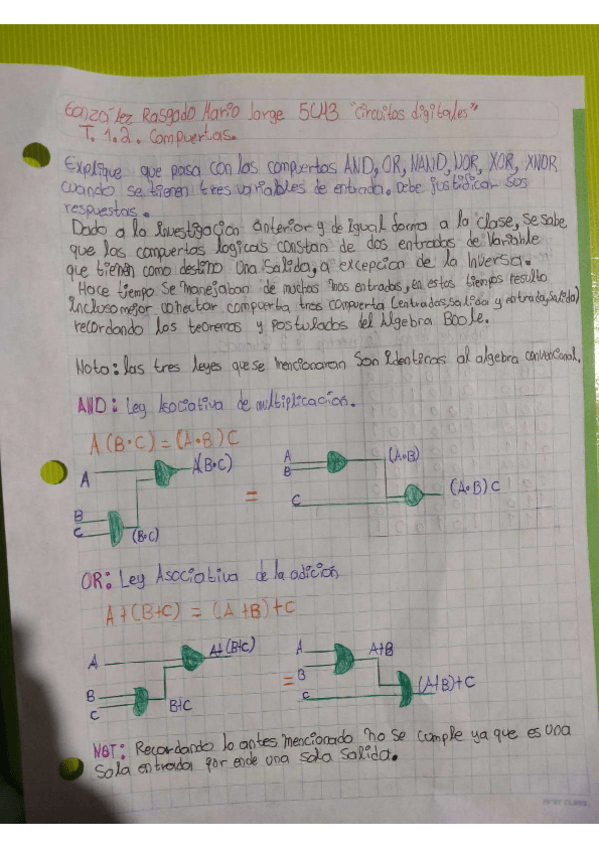 González Rasgado Mario Jorge 5CM3 "Circuitos digitales"
T. 1.2. Compuertas.
Explique que pasa con las compuertas AND, OR, NAND, NOR, XOR, XNOR
cuando se tienen tres variables de entrada. Debe justificar sus
respuestas.
Dado a la investigación anterior y de igual forma a la clase, se sabe
que las compuertas logicas constan de dos entradas de variable
que tienen como destino una salida, a excepcion de la inversa.
Hace tiempo se manejaban de muchas mas entradas, en estos tiempos resulto
incluso mejor conectar compuerta tras compuerta (entradas, salida y entrada, salida)
recordando los teoremas y postulados del Algebra Boole.
Nota: las tres leyes que se mencionaran son identicas al algebra convencional.
AND: Ley Asociativa de multiplicacion.
A(B·C) = (A·B)C
A
B
C
(B·C)
A(B·C)
=
A
B
C
(A·B)
(A·B)C
OR: Ley Asociativa de la adicion
A+(B+C) = (A+B)+C
A
B
C
B+C
A+(B+C)
=
A
B
C
A+B
(A+B)+C
NOT: Recordando lo antes mencionado no se cumple ya que es una
sola entrada por ende una sola salida.